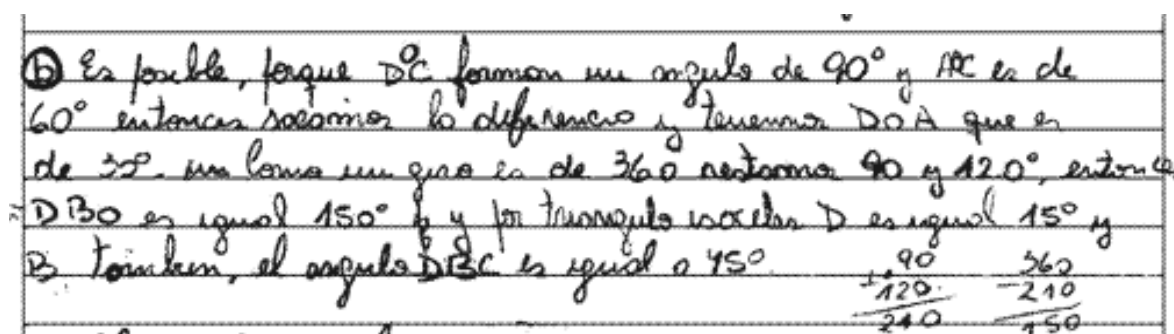 b) Es posible, porque DOC forman un angulo de 90° y AOC es de
60° entonces sacamos la diferencia y tenemos DOA que es
de 30°. Como un giro es de 360 restamos 90 y 120°, entonces
DBO es igual 150° y por triangulo isoceles D es igual 15° y
B tambien, el angulo DBC es igual a 45°.
90 360
+120 -210
210 150